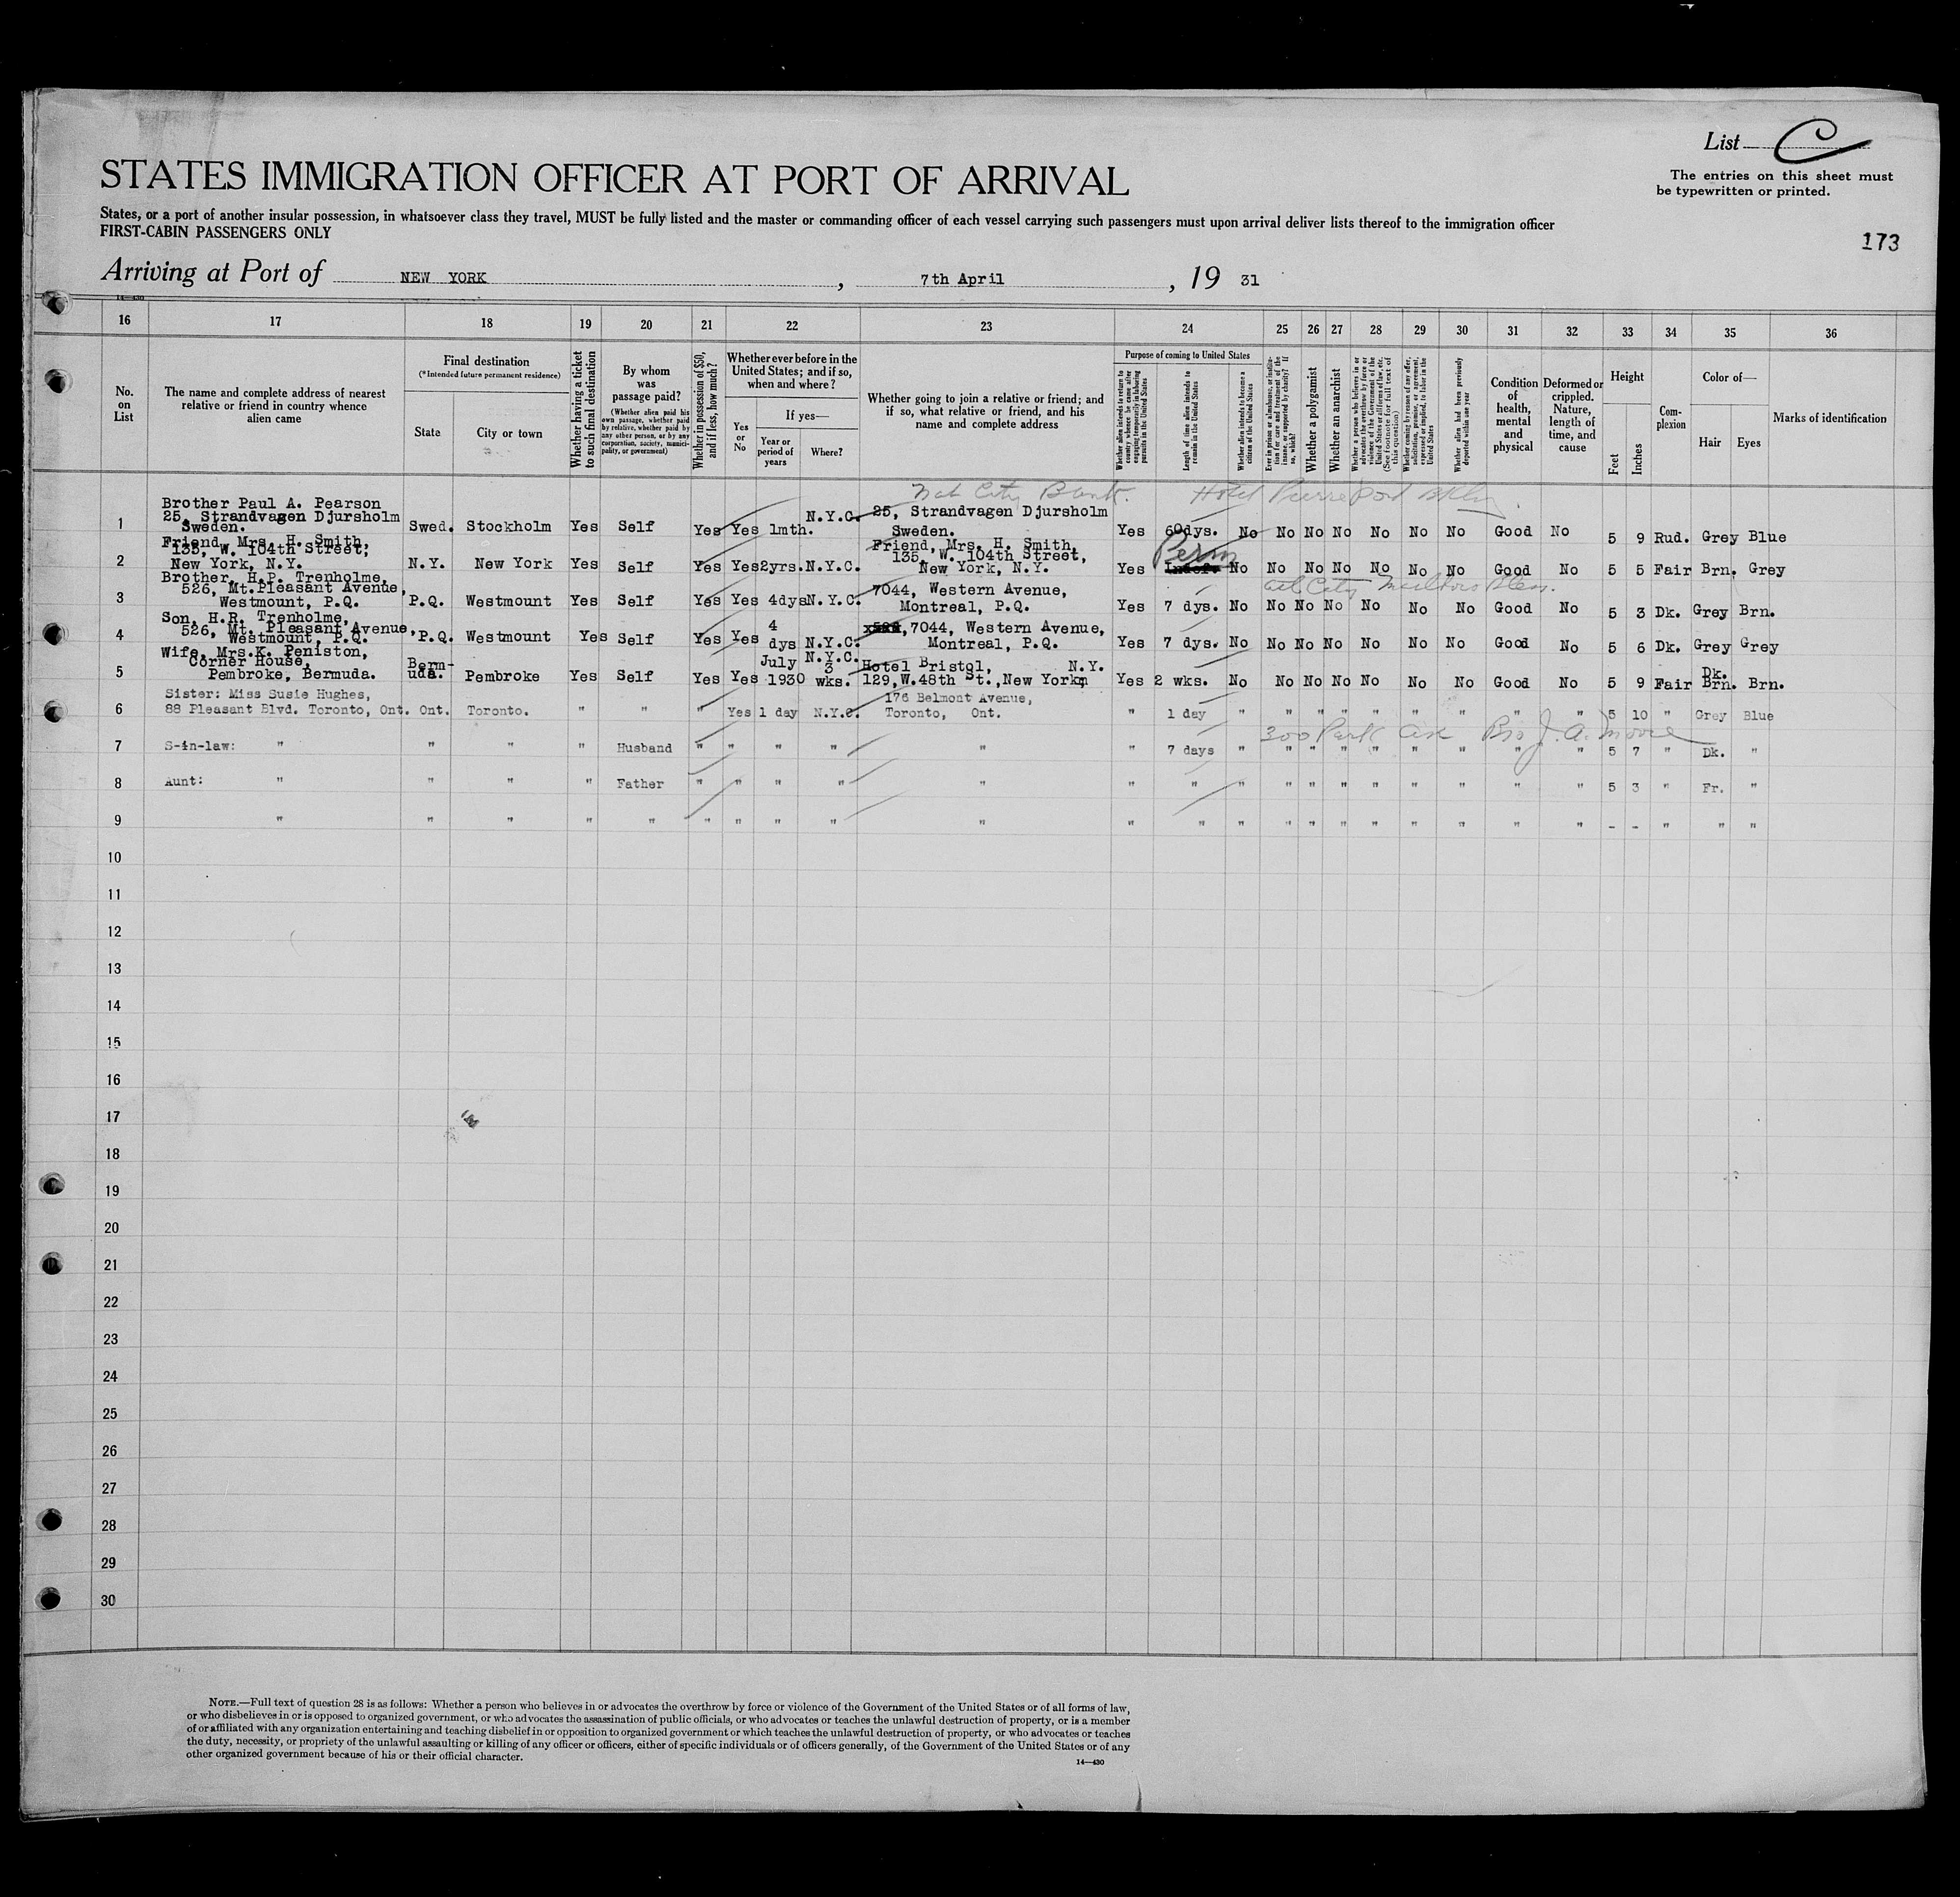 List C
The entries on this sheet must
be typewritten or printed.
STATES IMMIGRATION OFFICER AT PORT OF ARRIVAL
States, or a port of another insular possession, in whatsoever class they travel, MUST be fully listed and the master or commanding officer of each vessel carrying such passengers must upon arrival deliver lists thereof to the immigration officer
FIRST-CABIN PASSENGERS ONLY
173
Arriving at Port of NEW YORK, 7th April, 19 31
14—430
16 17 18 19 20 21 22 23 24 25 26 27 28 29 30 31 32 33 34 35 36
No. on List
The name and complete address of nearest relative or friend in country whence alien came
Final destination
(*Intended future permanent residence)
State
City or town
Whether having a ticket to such final destination
By whom was passage paid?
(Whether alien paid his own passage, whether paid by relative, whether paid by any other person, or by any corporation, society, municipality, or government)
Whether in possession of $50, and if less, how much?
Whether ever before in the United States; and if so, when and where?
Yes or No
If yes—
Year or period of years
Where?
Whether going to join a relative or friend; and if so, what relative or friend, and his name and complete address
Purpose of coming to United States
Whether alien intends to return to country whence he came after engaging temporarily in laboring pursuits in the United States
Length of time alien intends to remain in the United States
Whether alien intends to become a citizen of the United States
Ever in prison or almshouse, or institution for care and treatment of the insane, or supported by charity? If so, which?
Whether a polygamist
Whether an anarchist
Whether a person who believes in or advocates the overthrow by force or violence of the Government of the United States or all forms of law, etc. (See footnote for full text of this question)
Whether coming by reason of any offer, solicitation, promise, or agreement, expressed or implied, to labor in the United States
Whether alien had been previously deported within one year
Condition of health, mental and physical
Deformed or crippled. Nature, length of time, and cause
Height
Feet
Inches
Complexion
Color of—
Hair
Eyes
Marks of identification
Nat City Bank. Hotel Pierrepont Bklyn
1 Brother Paul A. Pearson 25, Strandvagen Djursholm Sweden. Swed. Stockholm Yes Self Yes Yes 1mth. N.Y.C. 25, Strandvagen Djursholm Sweden. Yes 60dys. No No No No No No No Good No 5 9 Rud. Grey Blue
2 Friend, Mrs. H. Smith, 135, W. 104th Street, New York, N.Y. N.Y. New York Yes Self Yes Yes 2yrs. N.Y.C. Friend, Mrs. H. Smith, 135, W. 104th Street, New York, N.Y. Yes Indef. Perm No No No No No No No Good No 5 5 Fair Brn. Grey
3 Brother, H.P. Trenholme, 526, Mt.Pleasant Avenue, Westmount, P.Q. P.Q. Westmount Yes Self Yes Yes 4dys N.Y.C. 7044, Western Avenue, Montreal, P.Q. Yes 7 dys. No No No No No No No Good No 5 3 Dk. Grey Brn.
4 Son, H.R. Trenholme, 526, Mt. Pleasant Avenue, Westmount, P.Q. P.Q. Westmount Yes Self Yes Yes 4 dys N.Y.C. 7044, Western Avenue, Montreal, P.Q. Yes 7 dys. No No No No No No No Good No 5 6 Dk. Grey Grey
5 Wife, Mrs.K. Peniston, Corner House, Pembroke, Bermuda. Bermuda. Pembroke Yes Self Yes Yes July 1930 N.Y.C. 3 wks. Hotel Bristol, N.Y. 129,W.48th St.,New York, Yes 2 wks. No No No No No No No Good No 5 9 Fair Dk. Brn. Brn.
6 Sister: Miss Susie Hughes, 88 Pleasant Blvd. Toronto, Ont. Ont. Toronto. " " " Yes 1 day N.Y.C. 176 Belmont Avenue, Toronto, Ont. " 1 day " " " " " " " " " 5 10 " Grey Blue
300 Park Ave Bro J. A. Moore
7 S-in-law: " " " " Husband " " " " " " 7 days " " " " " " " " " 5 7 " Dk. "
8 Aunt: " " " " Father " " " " " " " " " " " " " " " " 5 3 " Fr. "
9 " " " " " " " " " " " " " " " " " " " " " - - " " "
10
11
12
13
14
15
16
17
18
19
20
21
22
23
24
25
26
27
28
29
30
NOTE.—Full text of question 28 is as follows: Whether a person who believes in or advocates the overthrow by force or violence of the Government of the United States or of all forms of law,
or who disbelieves in or is opposed to organized government, or who advocates the assassination of public officials, or who advocates or teaches the unlawful destruction of property, or is a member
of or affiliated with any organization entertaining and teaching disbelief in or opposition to organized government or which teaches the unlawful destruction of property, or who advocates or teaches
the duty, necessity, or propriety of the unlawful assaulting or killing of any officer or officers, either of specific individuals or of officers generally, of the Government of the United States or of any
other organized government because of his or their official character.
14—430